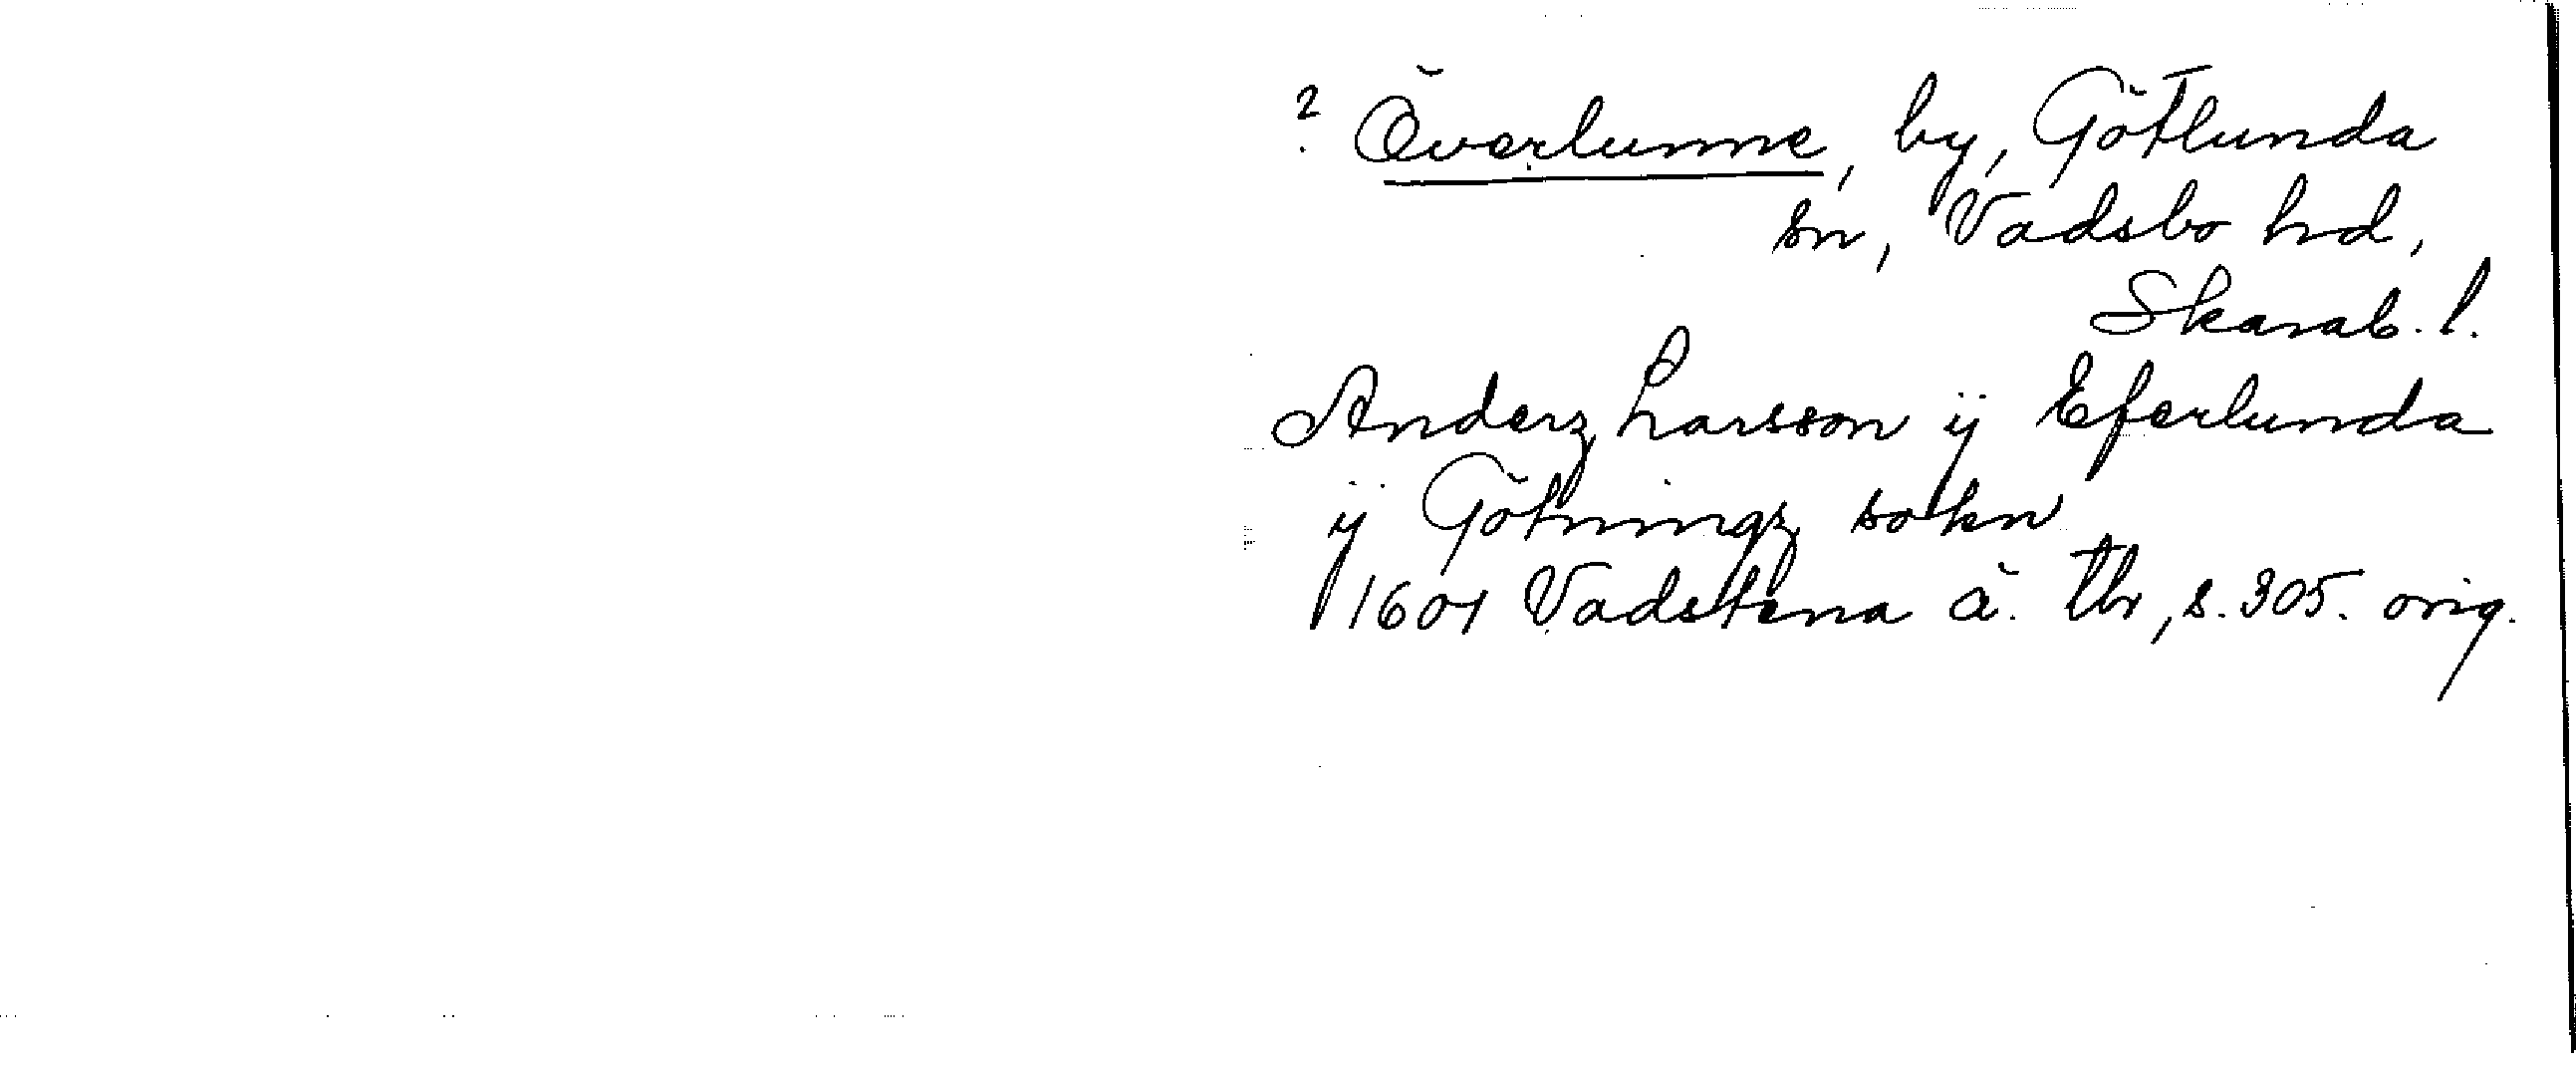 ? Överlunne, by, Götlunda
sn, Vadsbo hd,
Skarab. l.
Anderz Larsson ÿ Eferlunda
ÿ Götningz sokn
1601 Vadstena ä. tb, s. 305. orig.